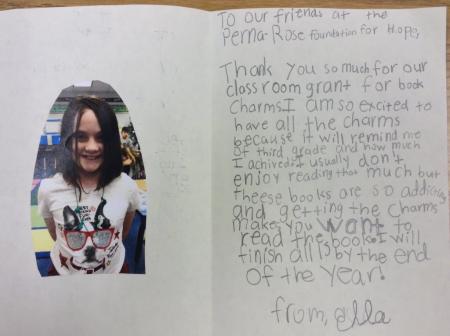 To our friends at the
Perna-Rose foundation for Hope,
Thank you so much for our
classroom grant for book
Charms. I am so excited to
have all the charms
because it will remind me
of third grade and how much
I achived. I usually don't
enjoy reading that much but
theese books are so addicting
and getting the charms
makes you want to
read the book. I will
finish all 15 by the end
of the year!
from, Ella